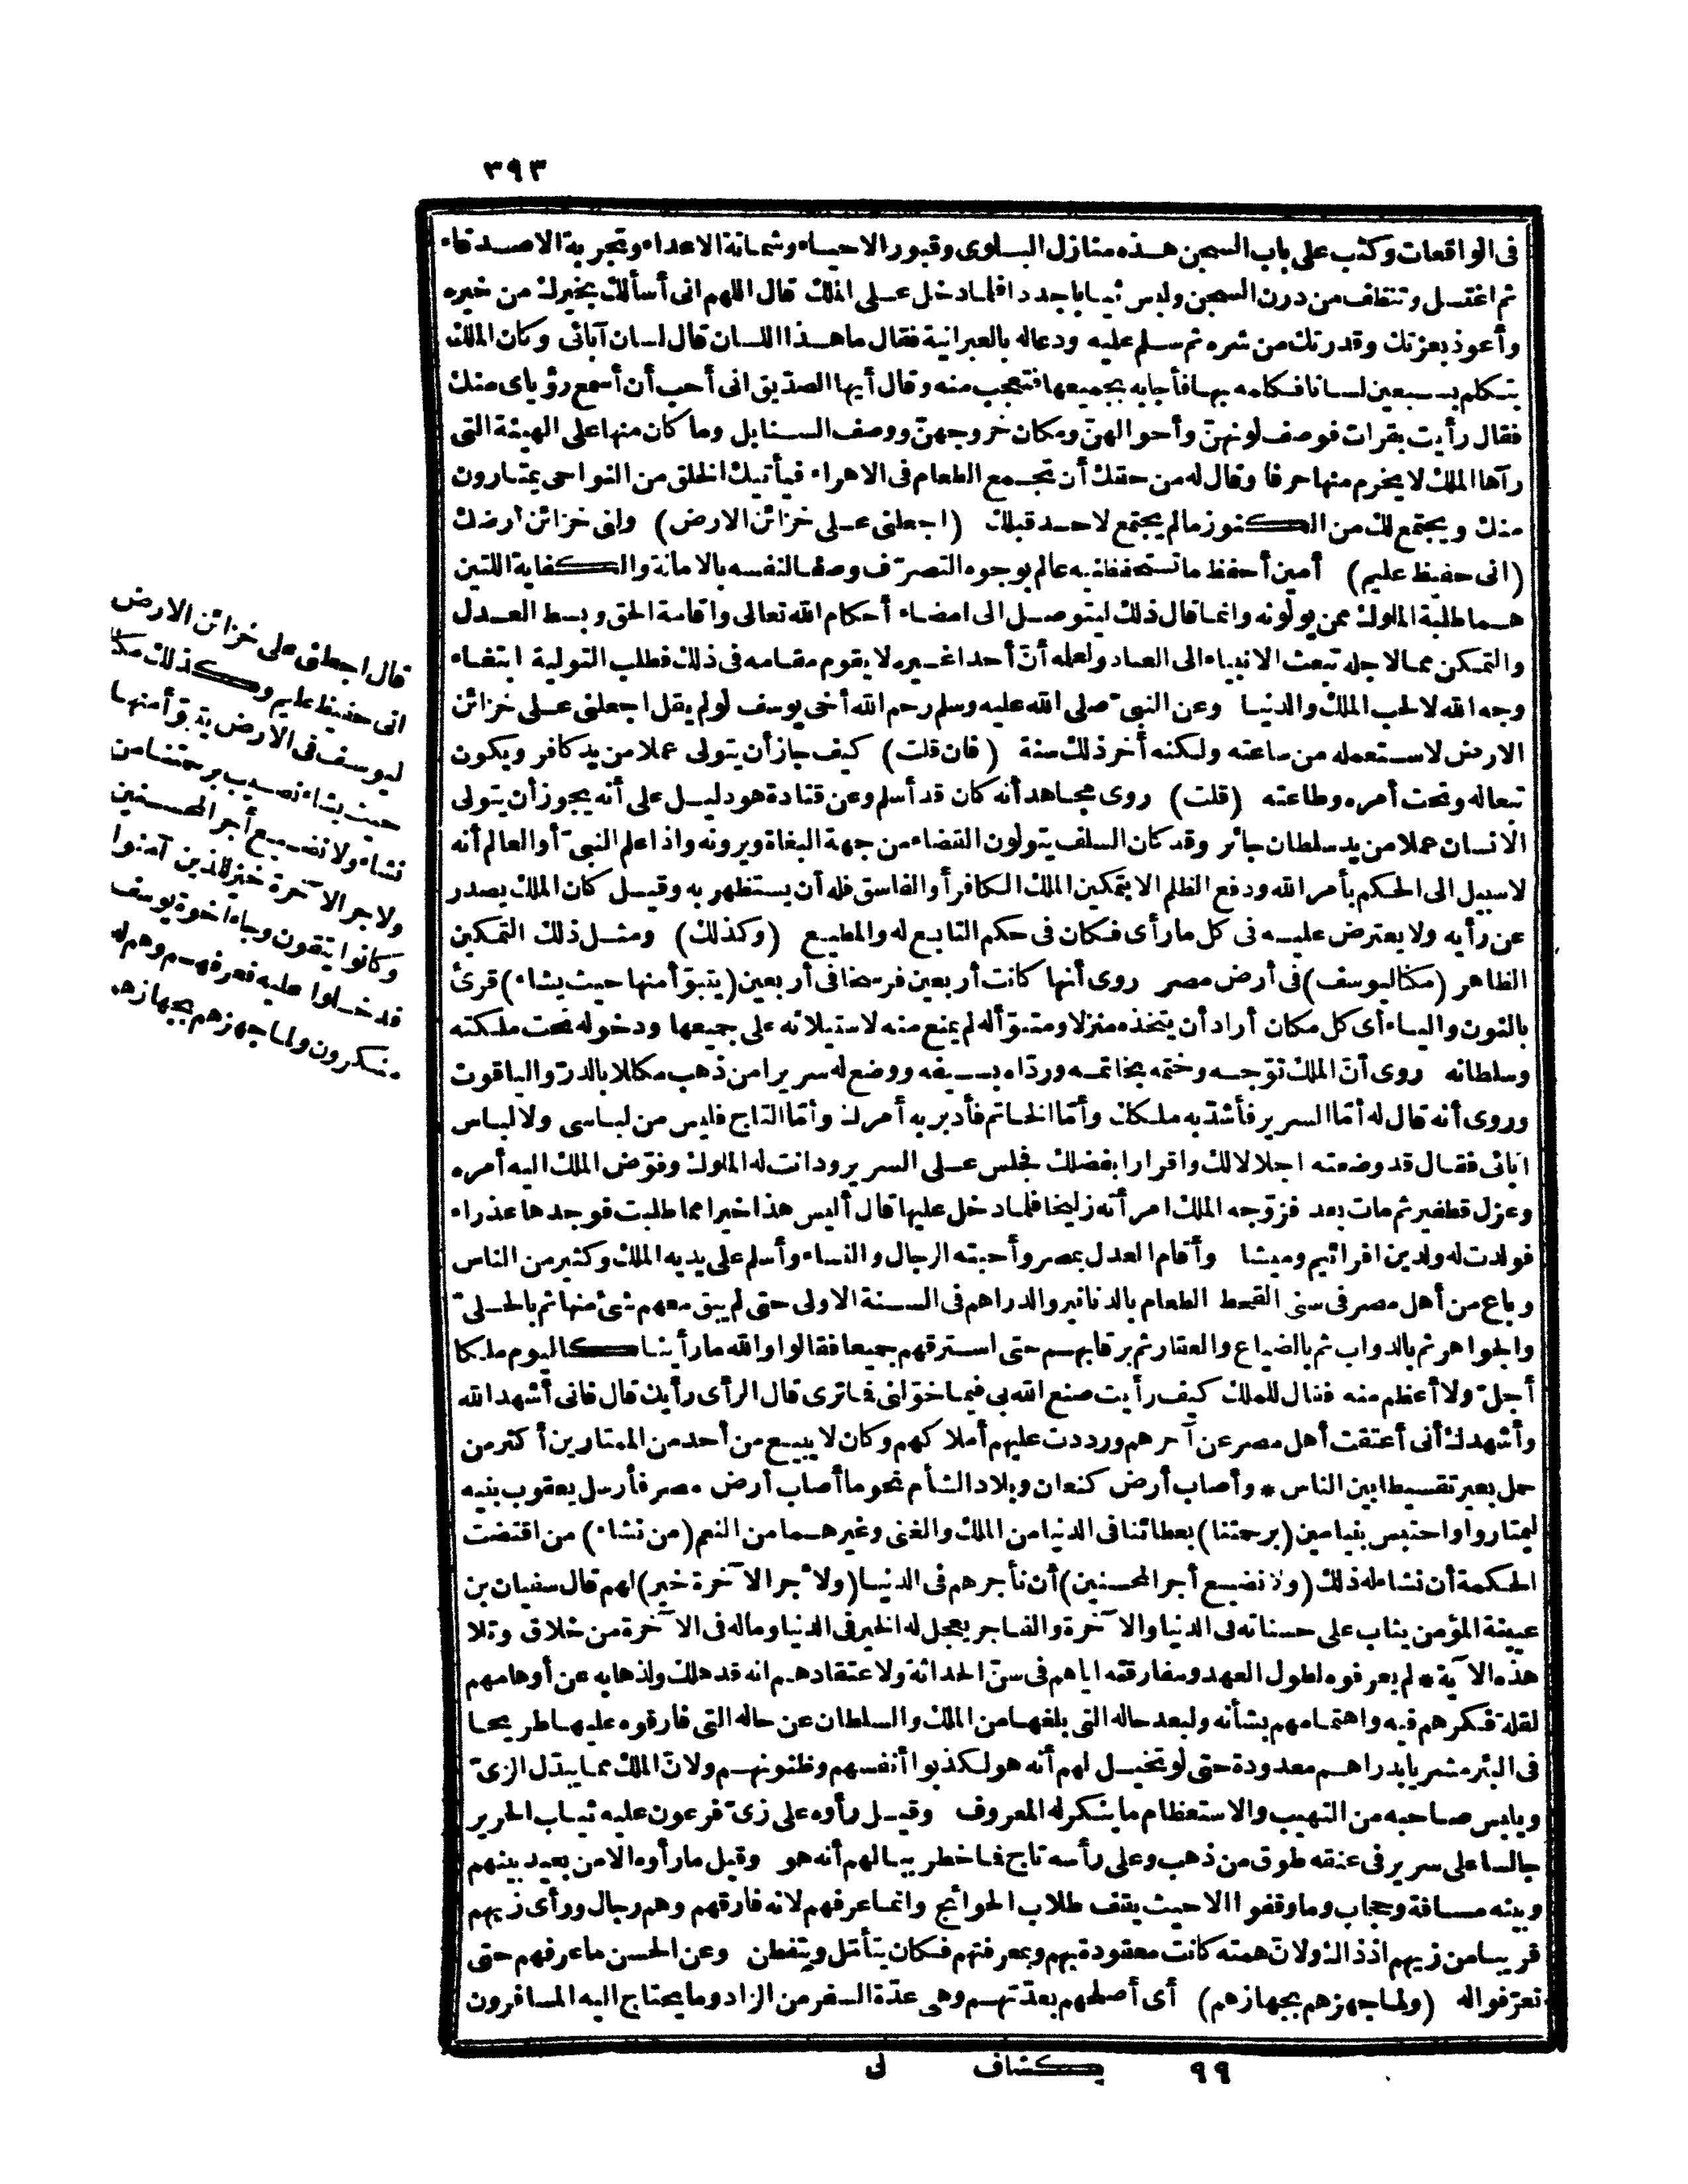 ٣٩٣
فى الواقعات وكتب على باب السجن هذه منازل البلوى وقبور الاحياء وشماتة الاعداء وتجربة الاصدقاء
ثم اغتسل وتنظف من درن السجن ولبس ثيابا جددا فلما دخل على الملك قال اللهم انى أسألك بخيرك من خيره
وأعوذ بعزتك وقدرتك من شره ثم سلم عليه ودعا له بالعبرانية فقال ما هذا اللسان قال لسان آبائى وكان الملك
يتكلم بسبعين لسانا فكلمه بها فأجابه بجميعها فتعجب منه وقال أيها الصدّيق انى أحب أن أسمع رؤياى منك
فقال رأيت بقرات فوصف لونهنّ وأحوالهنّ ومكان خروجهنّ ووصف السنابل وما كان منها على الهيئة التى
رآها الملك لا يخرم منها حرفا وقال له من حقك أن تجمع الطعام فى الاهراء فيأتيك الخلق من النواحى يمتارون
منك ويجتمع لك من الكنوز مالم يجتمع لاحد قبلك (اجعلنى على خزائن الارض) ولنى خزائن أرضك
(انى حفيظ عليم) أمين أحفظ ما تستحفظنيه عالم بوجوه التصرّف وصفا لنفسه بالامانة والكفاية اللتين
هما طلبة الملوك ممن يولونه وانما قال ذلك ليتوصل الى امضاء أحكام الله تعالى واقامة الحق وبسط العدل
والتمكن مما لاجله تبعث الانبياء الى العباد ولعله أنّ أحدا غيره لا يقوم مقامه فى ذلك فطلب التولية ابتغاء
وجه الله لا لحب الملك والدنيا وعن النبىّ صلى الله عليه وسلم رحم الله أخى يوسف لولم يقل اجعلنى على خزائن
الارض لاستعمله من ساعته ولكنه أخر ذلك سنة (فان قلت) كيف جاز أن يتولى عملا من يد كافر ويكون
تبعا له وتحت أمره وطاعته (قلت) روى مجاهد أنه كان قد أسلم وعن قتادة هو دليل على أنه يجوز أن يتولى
الانسان عملا من يد سلطان جائر وقد كان السلف يتولون القضاء من جهة البغاة ويرونه واذا علم النبىّ أو العالم أنه
لا سبيل الى الحكم بأمر الله ودفع الظلم الا بتمكين الملك الكافر أو الفاسق فله أن يستظهر به وقيل كان الملك يصدر
عن رأيه ولا يعترض عليه فى كل ما رأى فكان فى حكم التابع له والمطيع (وكذلك) ومثل ذلك التمكين
الظاهر (مكنا ليوسف) فى أرض مصر روى أنها كانت أربعين فرسخا فى أربعين (يتبوّأ منها حيث يشاء) قرئ
بالنون والياء أى كل مكان أراد أن يتخذه منزلا ومتبوّأ له لم يمنع منه لاستيلائه على جميعها ودخوله تحت ملكته
وسلطانه روى أنّ الملك توّجه وختمه بخاتمه وردّاه بسيفه ووضع له سريرا من ذهب مكللا بالدرّ والياقوت
وروى أنه قال له أمّا السرير فأشدّ به ملكك وأمّا الخاتم فأدبر به أمرك وأمّا التاج فليس من لباسى ولا لباس
آبائى فقال قد وضعته اجلالا لك واقرارا بفضلك فجلس على السرير ودانت له الملوك وفوّض الملك اليه أمره
وعزل قطفير ثم مات بعد فزوّجه الملك امرأته زليخا فلما دخل عليها قال أليس هذا خيرا مما طلبت فوجدها عذراء
فولدت له ولدين افرائيم وميشا وأقام العدل بمصر وأحبته الرجال والنساء وأسلم على يديه الملك وكثير من الناس
وباع من أهل مصر فى سنى القحط الطعام بالدنانير والدراهم فى السنة الاولى حتى لم يبق معهم شئ منها ثم بالحلىّ
والجواهر ثم بالدواب ثم بالضياع والعقار ثم برقابهم حتى استرقهم جميعا فقالوا والله ما رأينا كاليوم ملكا
أجلّ ولا أعظم منه فقال للملك كيف رأيت صنع الله بى فيما خوّلنى فما ترى قال الرأى رأيك قال فانى أشهد الله
وأشهدك أنى أعتقت أهل مصر عن آخرهم ورددت عليهم أملاكهم وكان لا يبيع من أحد من الممتارين أكثر من
حمل بعير تقسيطا بين الناس * وأصاب أرض كنعان وبلاد الشأم نحو ما أصاب أرض مصر فأرسل يعقوب بنيه
ليمتاروا واحتبس بنيامين (برحمتنا) بعطائنا فى الدنيا من الملك والغنى وغيرهما من النعم (من نشاء) من اقتضت
الحكمة أن نشاء له ذلك (ولا نضيع أجر المحسنين) أن نأجرهم فى الدنيا (ولأجر الآخرة خير) لهم قال سفيان بن
عيينة المؤمن يثاب على حسناته فى الدنيا والآخرة والفاجر يعجل له الخير فى الدنيا وماله فى الآخرة من خلاق وتلا
هذه الآية * لم يعرفوه لطول العهد ومفارقته اياهم فى سنّ الحداثة ولاعتقادهم انه قد هلك ولذهابه عن أوهامهم
لقلة فكرهم فيه واهتمامهم بشأنه ولبعد حاله التى بلغها من الملك والسلطان عن حاله التى فارقوه عليها طريحا
فى البئر مشريا بدراهم معدودة حتى لو تخيل لهم أنه هو لكذبوا أنفسهم وظنونهم ولانّ الملك مما يبدّل الزىّ
ويلبس صاحبه من التهيب والاستعظام ما ينكر له المعروف وقيل رأوه على زىّ فرعون عليه ثياب الحرير
جالسا على سرير فى عنقه طوق من ذهب وعلى رأسه تاج فما خطر ببالهم أنه هو وقيل ما رأوه الا من بعيد بينهم
وبينه مسافة وحجاب وما وقفوا الا حيث يقف طلاب الحوائج وانما عرفهم لانه فارقهم وهم رجال ورأى زيهم
قريبا من زيهم اذ ذاك ولانّ همته كانت معقودة بهم وبمعرفتهم فكان يتأمّل ويتفطن وعن الحسن ما عرفهم حتى
تعرّفوا له (ولما جهزهم بجهازهم) أى أصلحهم بعدّتهم وهى عدّة السفر من الزاد وما يحتاج اليه المسافرون
قال اجعلنى على خزائن الارض
انى حفيظ عليم وكذلك مكنا
ليوسف فى الارض يتبوّأ منها
حيث يشاء نصيب برحمتنا من
نشاء ولا نضيع أجر المحسنين
ولاجر الآخرة خير للذين آمنوا
وكانوا يتقون وجاء اخوة يوسف
فدخلوا عليه فعرفهم وهم له
منكرون ولما جهزهم بجهازهم
٩٩ كشاف ل